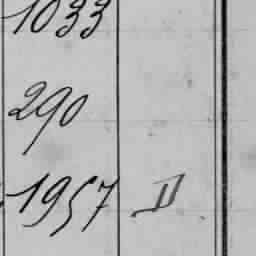 1033
290
1957 II